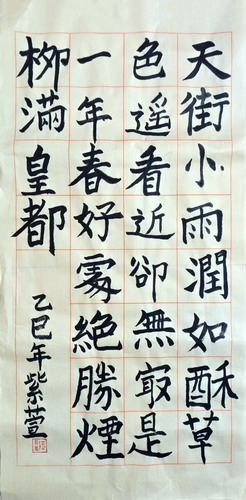 天街小雨潤如酥草
色遥看近卻無㝡是
一年春好處絕勝煙
柳滿皇都
乙巳年紫萱